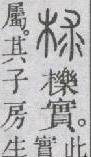 梂櫟實。此
實
屬。其子房生